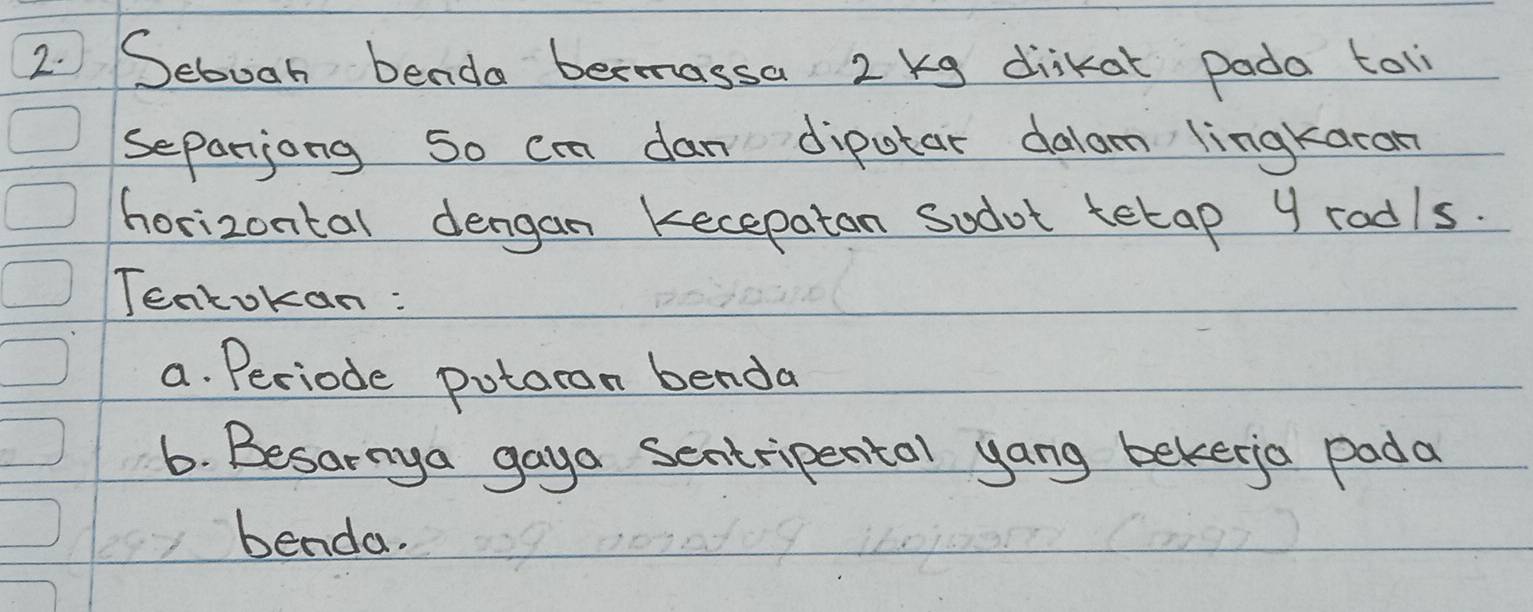 2. Sebuah benda bermassa 2 kg diikat pada tali
sepanjang 50 cm dan diputar dalam lingkaran
horizontal dengan kecepatan sudut tetap 4 rad/s.
Tentukan :
a. Periode putaran benda
b. Besarnya gaya sentripental yang bekerja pada
benda.